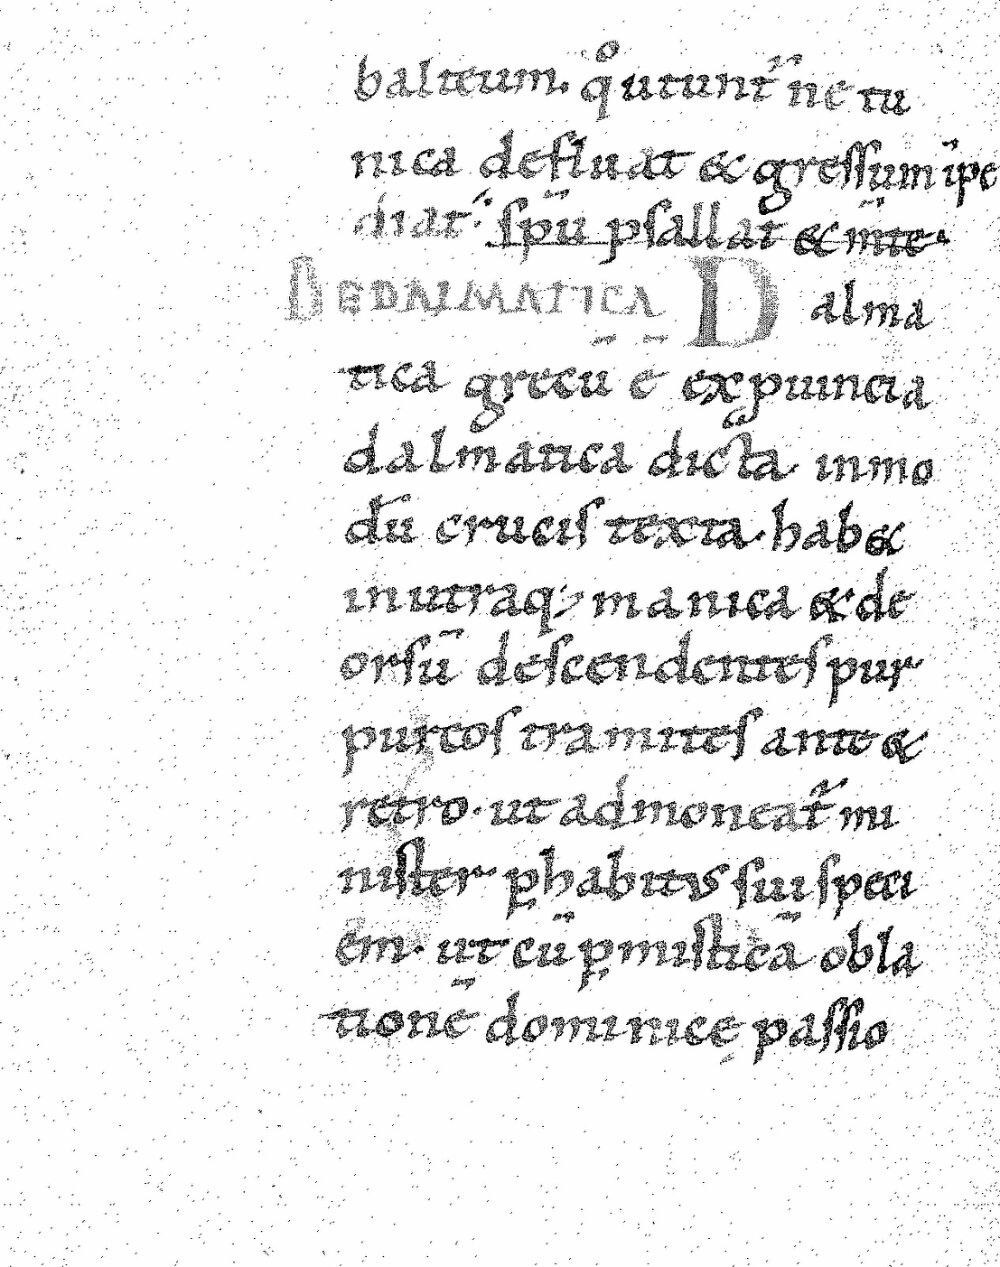 balteum. qͦ utunt᷑ ne tu
nica defluat & gressum īpe
diat. spū psallat & mte.
DE DALMATICA Dalma
tica grecū ē ex puincia
dalmatica dicta. inmo
dū crucis texta. hab&
inutraq; manica & de
orsū descendentes pur
pureos tramites ante &
retro. ut admoneat᷑ mi
nister ꝑ habitus sui speci
em. ut cū ꝑ mistica obla
tionē dominicę passio